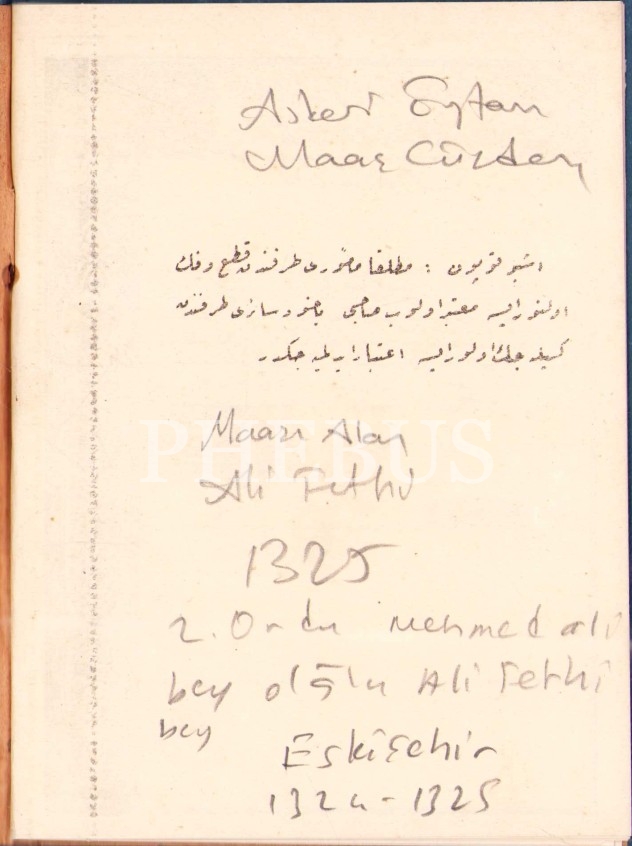 Askeri Eytam
Maaş Cüzdanı
اشبو قوپون : مطلقا مأموری طرفندن قطع وفك
اولنور ایسه معتبر اولوب صاحبی یاخود سائری طرفندن
كسیله جك اولور ایسه اعتبار ایدلمیه جكدر
Maaşı Alan
Ali Fethi
PHEBUS
1325
2. Ordu Mehmed ali
bey oğlu Ali Fethi
bey
Eskişehir
1324-1325